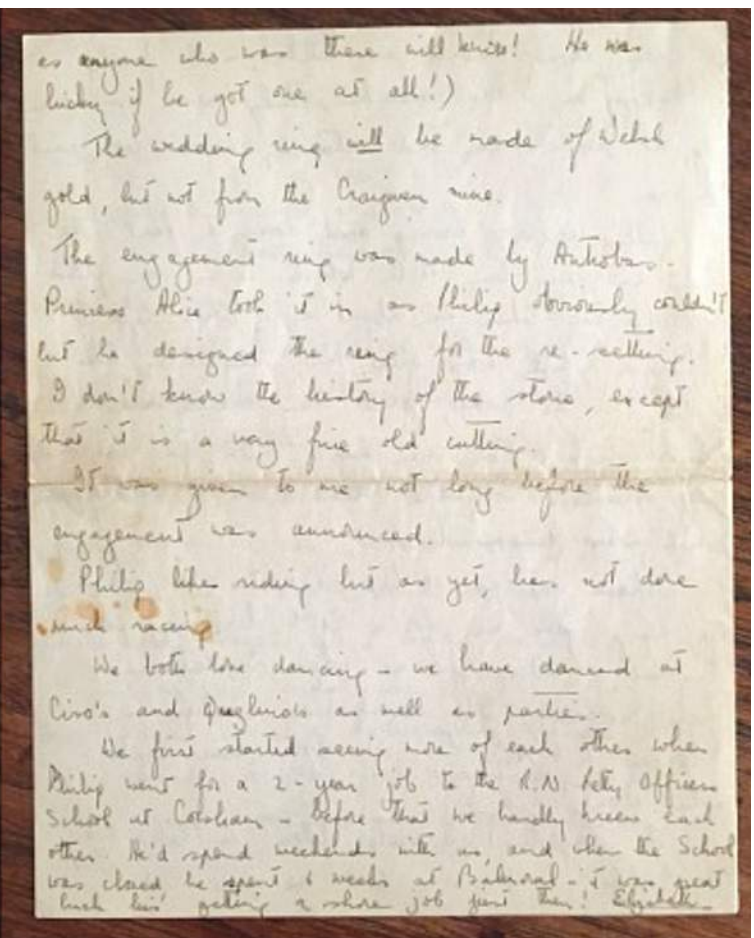 as anyone who was there will know! He was
lucky if he got one at all!)
The wedding ring will be made of Welsh
gold, but not from the Craigwen mine.
The engagement ring was made by Antrobus.
Princess Alice took it in as Philip obviously couldn't
but he designed the ring for the re-setting.
I don't know the history of the stone, except
that it is a very fine old cutting.
It was given to me not long before the
engagement was announced.
Philip likes riding but as yet, has not done
much racing
We both love dancing – we have danced at
Ciro's and Quaglino's as well as parties.
We first started seeing more of each other when
Philip went for a 2-year job to the R.N. Petty Officers
School at Corsham – before that we hardly knew each
other. He'd spend weekends with us, and when the School
was closed he spent 6 weeks at Balmoral – it was great
luck his getting a shore job just then! Elizabeth